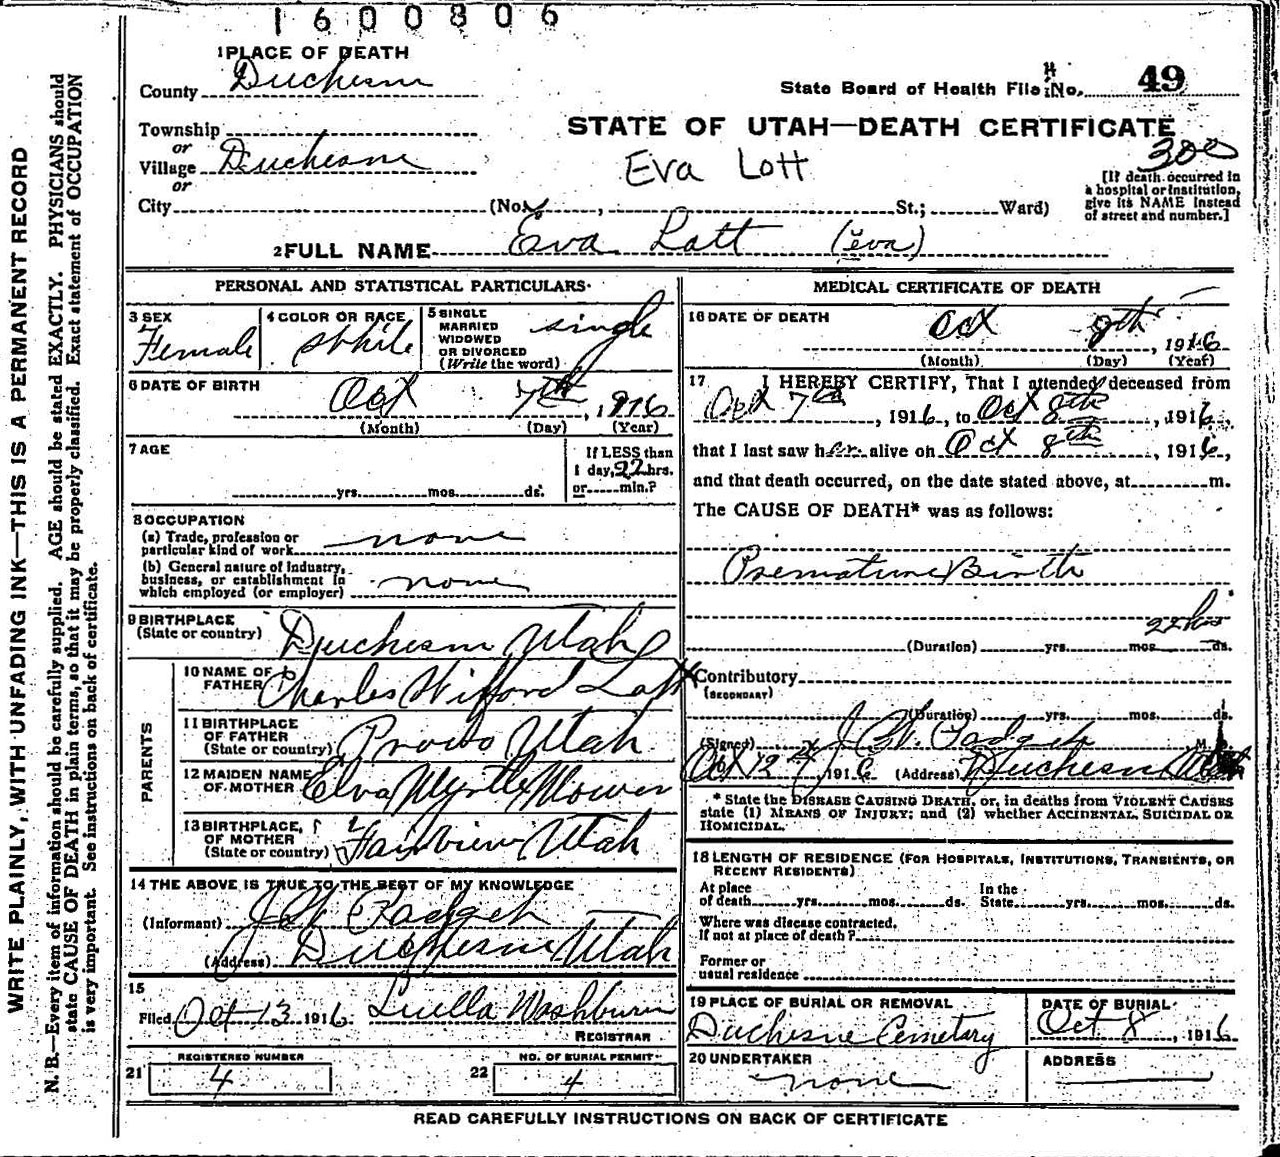 1600806
1 PLACE OF DEATH
County Duchesne
State Board of Health File No. 49
Township
or
Village Duchesne
or
City (No. , St.; Ward)
STATE OF UTAH—DEATH CERTIFICATE
300
Eva Lott
[If death occurred in
a hospital or institution,
give its NAME instead
of street and number.]
2 FULL NAME Eva Lott (Eva)
PERSONAL AND STATISTICAL PARTICULARS
3 SEX
Female
4 COLOR OR RACE
White
5 SINGLE
MARRIED
WIDOWED
OR DIVORCED
(Write the word)
single
6 DATE OF BIRTH
Oct 7th, 1916
(Month) (Day) (Year)
7 AGE
yrs. mos. ds.
If LESS than
1 day, 22 hrs.
or min.?
8 OCCUPATION
(a) Trade, profession or
particular kind of work none
(b) General nature of industry,
business, or establishment in
which employed (or employer) none
9 BIRTHPLACE
(State or country) Duchesne Utah
PARENTS
10 NAME OF
FATHER Charles Wilford Lott
11 BIRTHPLACE
OF FATHER
(State or country) Provo Utah
12 MAIDEN NAME
OF MOTHER Elva Myrtle Mower
13 BIRTHPLACE,
OF MOTHER
(State or country) Fairview Utah
14 THE ABOVE IS TRUE TO THE BEST OF MY KNOWLEDGE
(Informant) J W
(Address) Duchesne Utah
15
Filed Oct 13 1916 Luella Washburn
REGISTRAR
REGISTERED NUMBER
21 4
NO. OF BURIAL PERMIT
22 4
MEDICAL CERTIFICATE OF DEATH
16 DATE OF DEATH
Oct 8th, 1916
(Month) (Day) (Year)
17 I HEREBY CERTIFY, That I attended deceased from
Oct 7th, 1916, to Oct 8th, 1916,
that I last saw her alive on Oct 8th, 1916,
and that death occurred, on the date stated above, at m.
The CAUSE OF DEATH* was as follows:
Premature Birth
22 hrs
(Duration) yrs. mos. ds.
Contributory
(SECONDARY)
(Duration) yrs. mos. ds.
(Signed) J W M. D.
Oct 12, 1916 (Address) Duchesne Utah
* State the DISEASE CAUSING DEATH, or, in deaths from VIOLENT CAUSES
state (1) MEANS OF INJURY; and (2) whether ACCIDENTAL, SUICIDAL OR
HOMICIDAL.
18 LENGTH OF RESIDENCE (FOR HOSPITALS, INSTITUTIONS, TRANSIENTS, OR
RECENT RESIDENTS)
At place
of death yrs. mos. ds.
In the
State yrs. mos. ds.
Where was disease contracted,
If not at place of death?
Former or
usual residence
19 PLACE OF BURIAL OR REMOVAL
Duchesne Cemetary
DATE OF BURIAL
Oct 8, 1916
20 UNDERTAKER
none
ADDRESS
READ CAREFULLY INSTRUCTIONS ON BACK OF CERTIFICATE
WRITE PLAINLY, WITH UNFADING INK—THIS IS A PERMANENT RECORD
N. B.—Every item of information should be carefully supplied. AGE should be stated EXACTLY. PHYSICIANS should
state CAUSE OF DEATH in plain terms, so that it may be properly classified. Exact statement of OCCUPATION
is very important. See instructions on back of certificate.